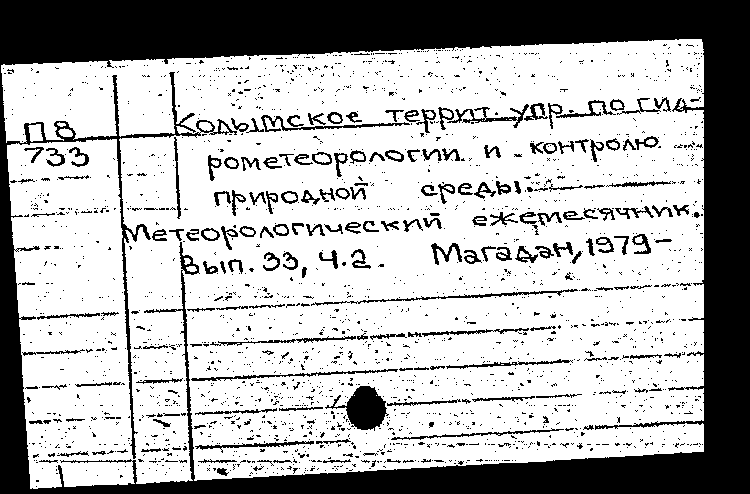 П8
733
Колымское террит. упр. по гид-
рометеорологии и контролю
природной среды.
Метеорологический ежемесячник.
Вып. 33, ч.2. Магадан, 1979-